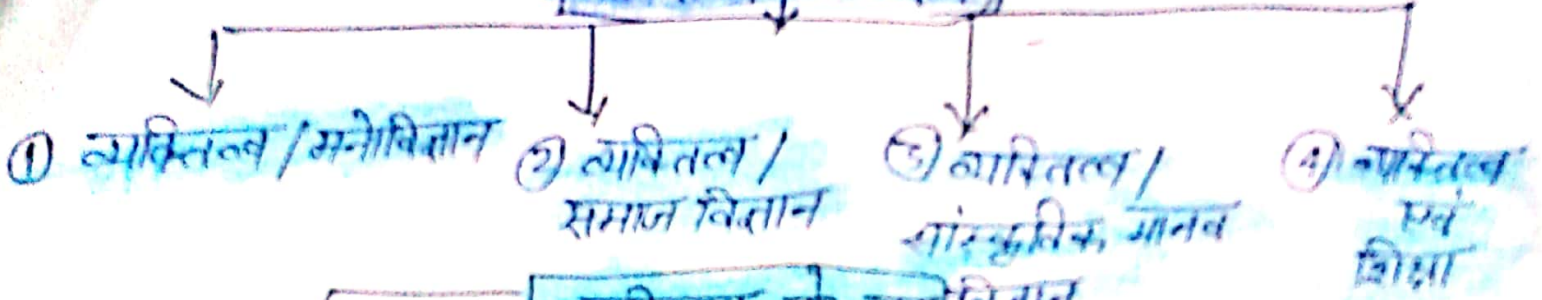 ① व्यक्तित्व / मनोविज्ञान
② व्यक्तित्व /
समाज विज्ञान
③ व्यक्तित्व /
सांस्कृतिक मानव
विज्ञान
④ व्यक्तित्व
एवं
शिक्षा